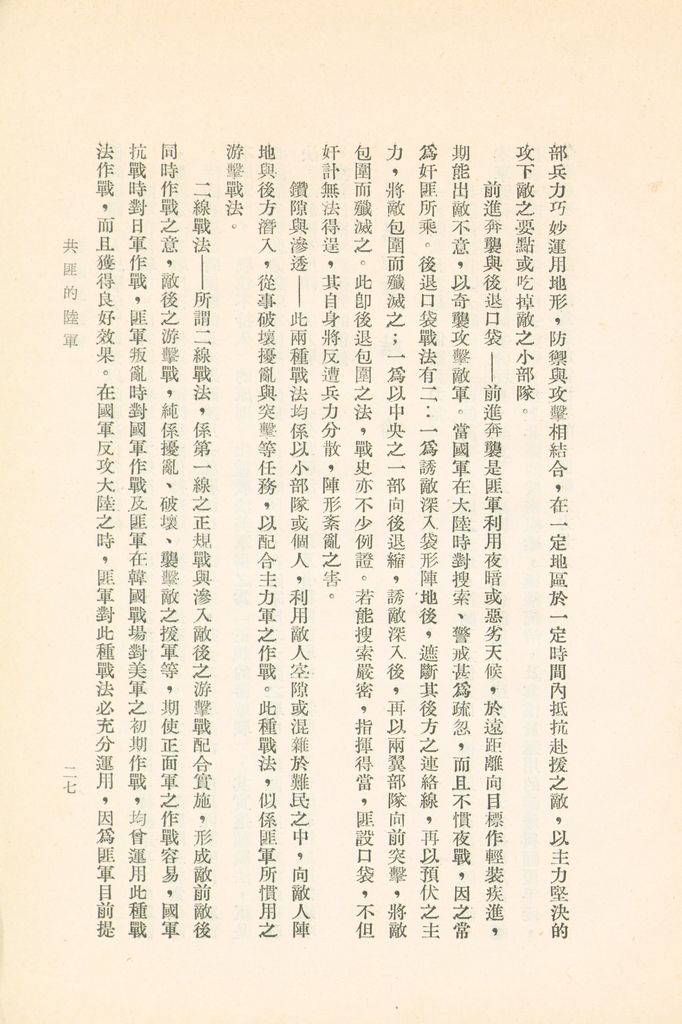 部兵力巧妙運用地形，防禦與攻擊相結合，在一定地區於一定時間內抵抗赴援之敵，以主力堅決的
攻下敵之要點或吃掉敵之小部隊。
前進奔襲與後退口袋——前進奔襲是匪軍利用夜暗或惡劣天候，於遠距離向目標作輕裝疾進，
期能出敵不意，以奇襲攻擊敵軍。當國軍在大陸時對搜索、警戒甚爲疏忽，而且不慣夜戰，因之常
爲奸匪所乘。後退口袋戰法有二：一爲誘敵深入袋形陣地後，遮斷其後方之連絡線，再以預伏之主
力，將敵包圍而殲滅之；一爲以中央之一部向後退縮，誘敵深入後，再以兩翼部隊向前突擊，將敵
包圍而殲滅之。此卽後退包圍之法，戰史亦不少例證。若能搜索嚴密，指揮得當，匪設口袋，不但
奸計無法得逞，其自身將反遭兵力分散，陣形紊亂之害。
鑽隙與滲透——此兩種戰法均係以小部隊或個人，利用敵人空隙或混雜於難民之中，向敵人陣
地與後方潛入，從事破壞擾亂與突擊等任務，以配合主力軍之作戰。此種戰法，似係匪軍所慣用之
游擊戰法。
二線戰法——所謂二線戰法，係第一線之正規戰與滲入敵後之游擊戰配合實施，形成敵前敵後
同時作戰之意，敵後之游擊戰，純係擾亂、破壞、襲擊敵之援軍等，期使正面軍之作戰容易，國軍
抗戰時對日軍作戰，匪軍叛亂時對國軍作戰及匪軍在韓國戰場對美軍之初期作戰，均曾運用此種戰
法作戰，而且獲得良好效果。在國軍反攻大陸之時，匪軍對此種戰法必充分運用，因爲匪軍目前提
共匪的陸軍
二七